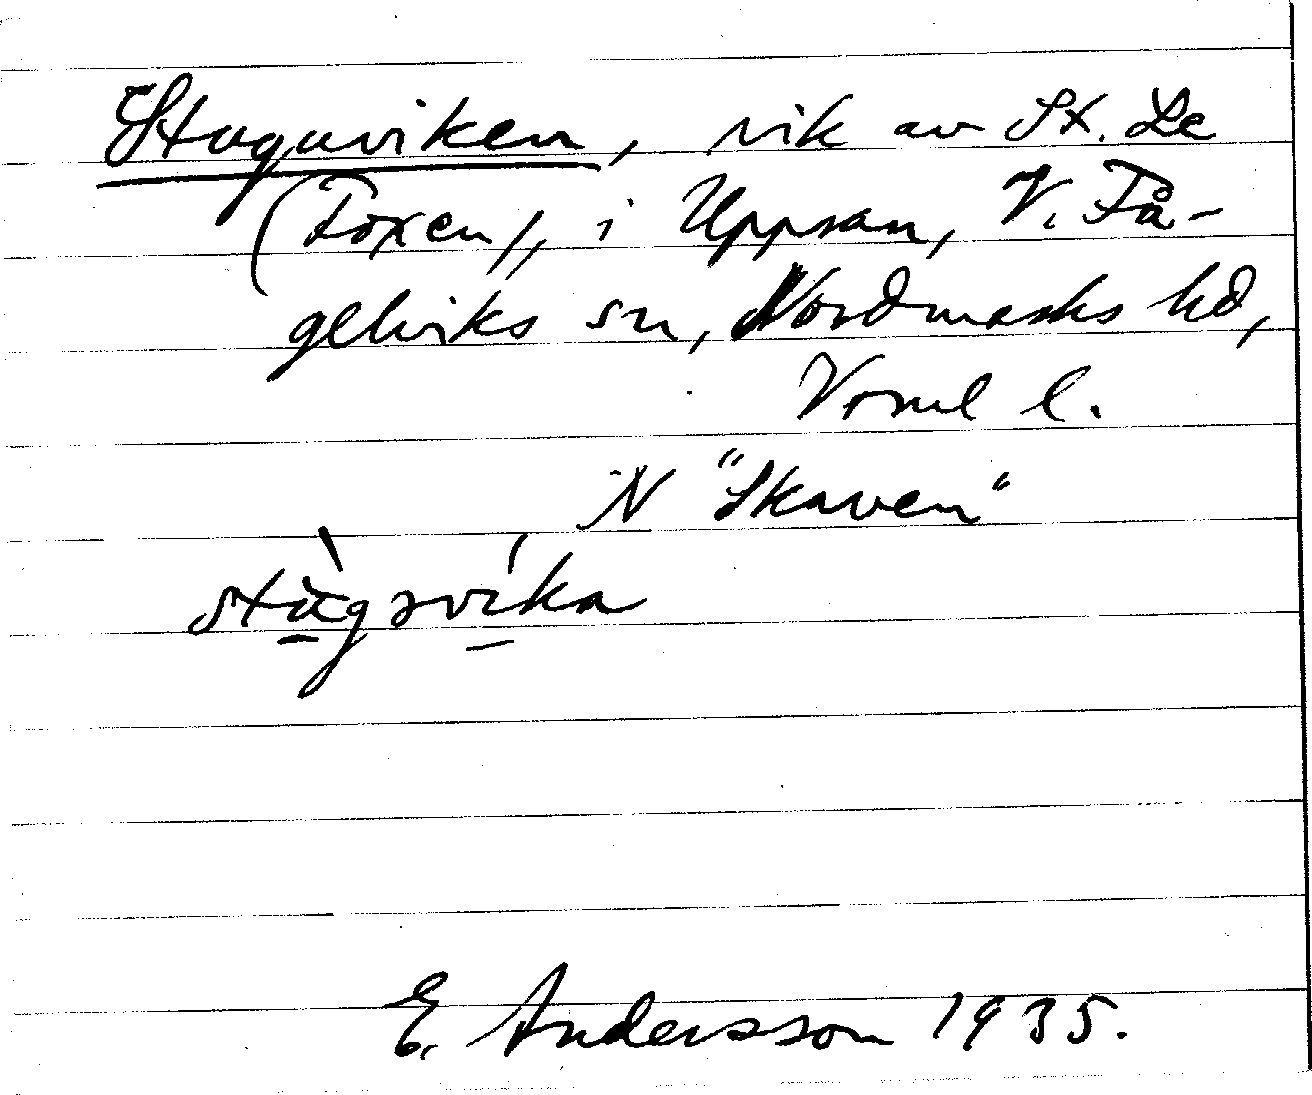 Stuguviken, vik av St. Le
(Foxen), i Uppsan, V. Få-
gelviks sn, Nordmarks hd,
Vrml l.
N "Skaven"
stùgəvíka
E. Andersson 1935.